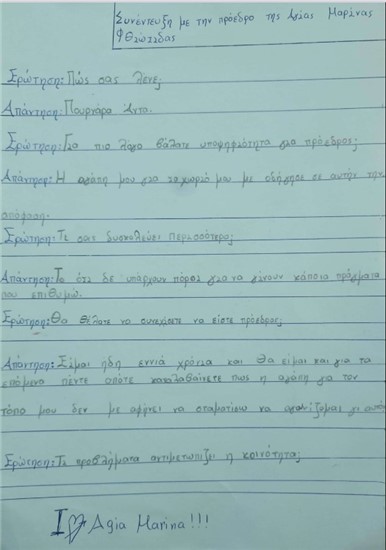 Συνέντευξη με την πρόεδρο της Αγίας Μαρίνας
Φθιώτιδας
Ερώτηση: Πώς σας λένε;
Απάντηση: Πουρνάρα Αντα.
Ερώτηση: Για πιο λόγο βάλατε υποψηφιότητα για πρόεδρος;
Απάντηση: Η αγάπη μου για το χωριό μου με οδήγησε σε αυτήν την
απόφαση.
Ερώτηση: Τι σας δυσκολεύει περισσότερο;
Απάντηση: Το ότι δε υπάρχουν πόροι για να γίνουν κάποια πράγματα
που επιθυμώ.
Ερώτηση: Θα θέλατε να συνεχίσετε να είστε πρόεδρος;
Απάντηση: Είμαι ήδη εννιά χρόνια και θα είμαι και για τα
επόμενα πέντε οπότε καταλαβαίνετε πως η αγάπη για τον
τόπο μου δεν με αφήνει να σταματίσω να αγωνίζομαι γι αυτό
Ερώτηση: Τι προβλήματα αντιμετωπίζει η κοινότητα;
I Agia Marina!!!